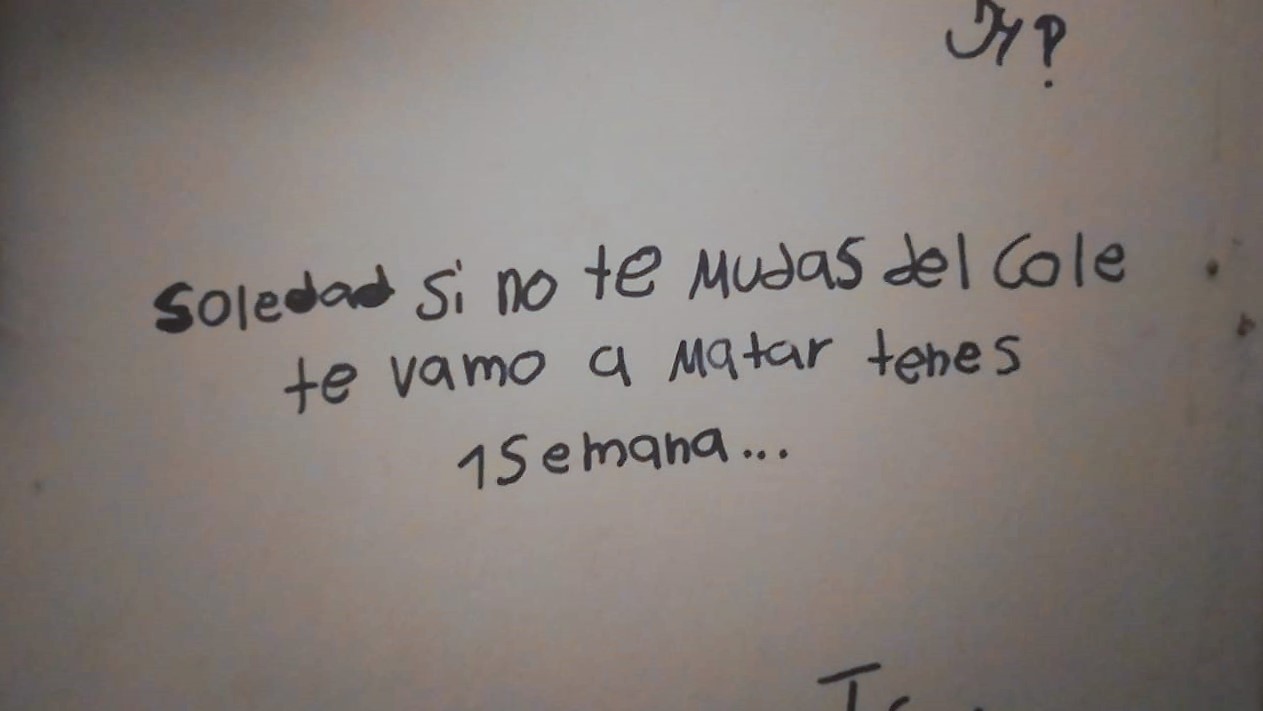 Jy?
Soledad si no te mudas del cole
te vamo a matar tenes
1 Semana...